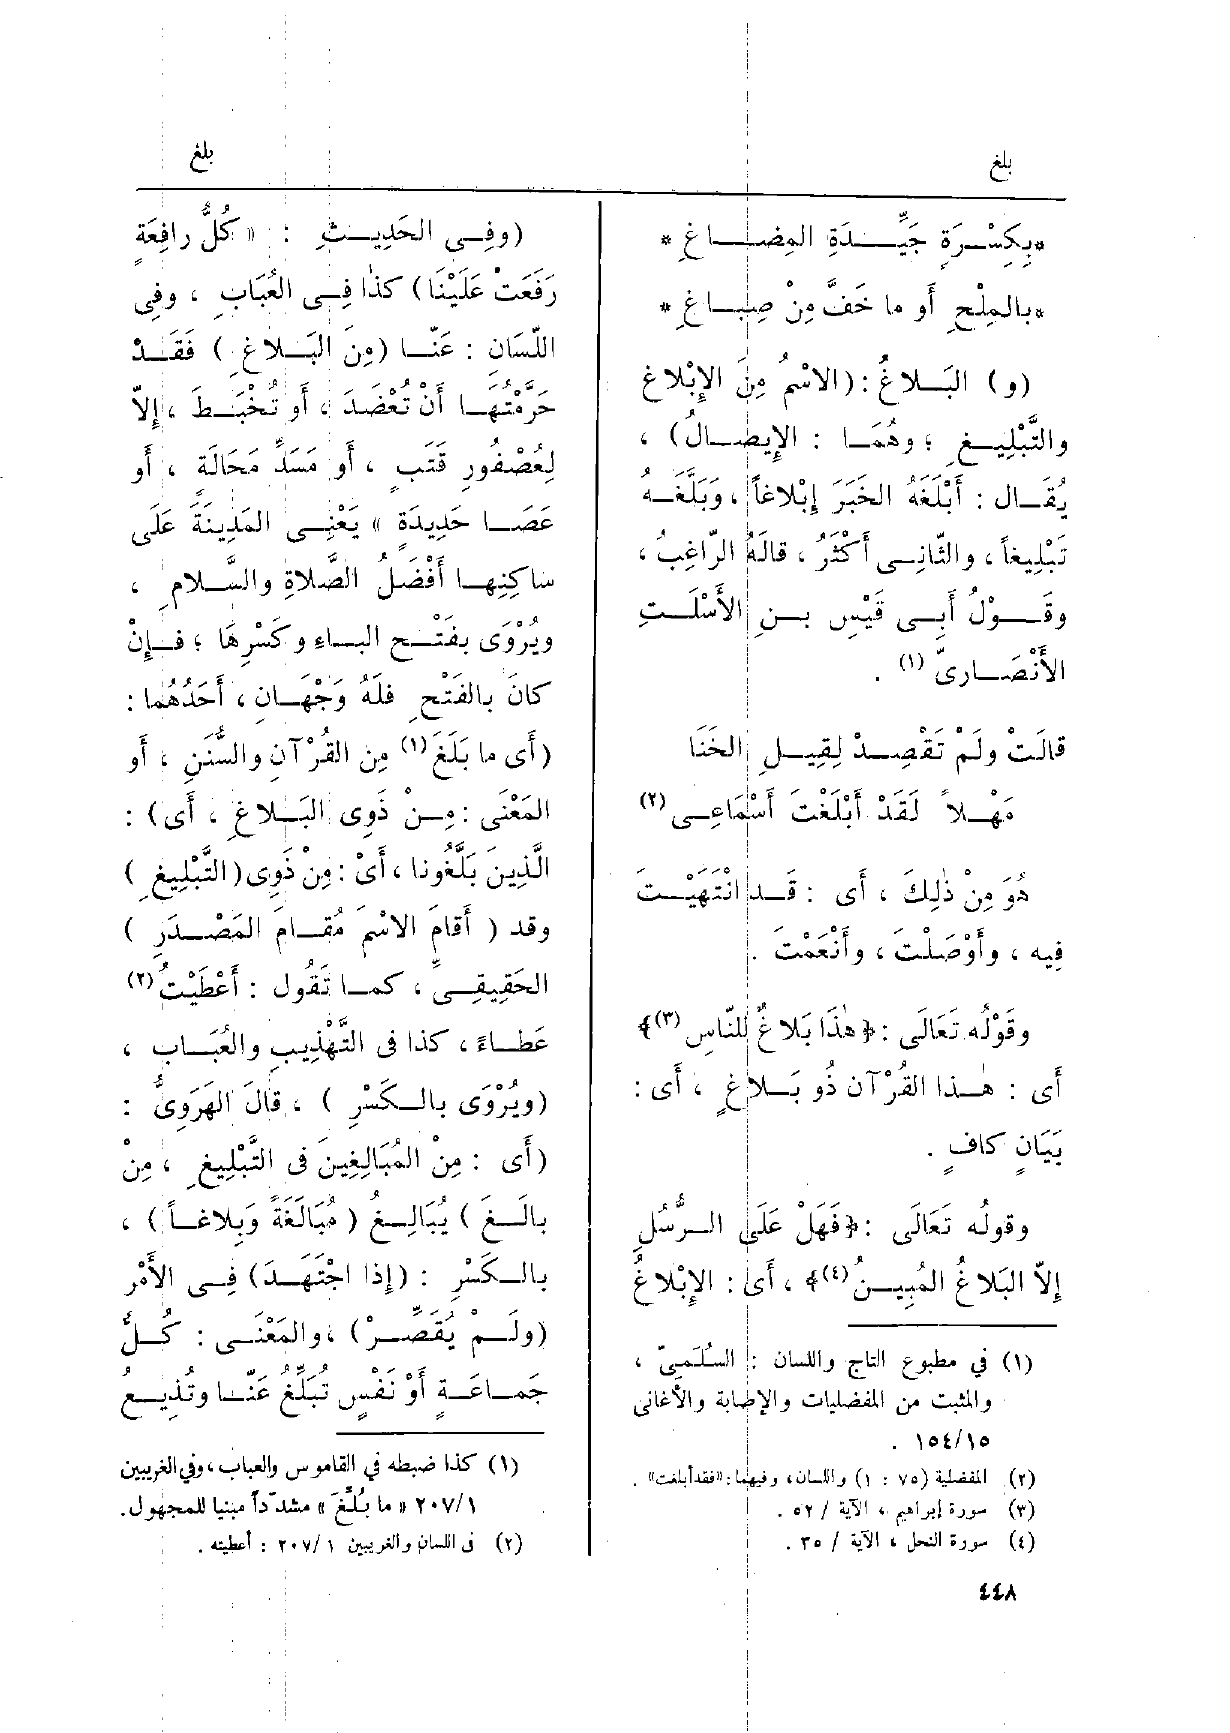 بلغ
بلغ
*بِكِسْرَةٍ جَيِّدَةِ المِضَاغِ*
*بالمِلْحِ أو ما خَفَّ مِنْ صِبَاغِ*
(و) البَلاغُ: (الاسْمُ مِنَ الإِبْلاغِ
والتَّبْلِيغِ ؛ وهُمَا : الإِيصَالُ) ،
يُقَال : أَبْلَغَهُ الخَبَرَ إِبْلاغاً ، وَبَلَّغَهُ
تَبْلِيغاً ، والثَّانِى أَكْثَرُ ، قالَهُ الرّاغِبُ ،
وقَوْلُ أَبِى قَيْسِ بنِ الأَسْلَتِ
الأَنْصَارِىِّ (١) .
قالَتْ ولَمْ تَقْصِدْ لِقِيلِ الخَنَا
مَهْلاً لَقَدْ أَبْلَغْتَ أَسْمَاعِى (٢)
هُوَ مِنْ ذٰلِكَ ، أَى : قَد انْتَهَيْتَ
فِيه ، وأَوْصَلْتَ ، وأَنْعَمْتَ .
وقَوْلُه تَعَالَى : ﴿هٰذَا بَلاغٌ لِلنَّاسِ (٣)﴾
أَى : هٰذا القُرْآن ذُو بَلاغٍ ، أَى :
بَيَانٍ كافٍ .
وقولُه تَعَالَى : ﴿فَهَلْ عَلَى الرُّسُلِ
إِلاّ البَلاغُ المُبِينُ (٤)﴾ ، أَى : الإِبْلاغُ
(١) في مطبوع التاج واللسان : السُلَمِيّ ،
والمثبت من المفضليات والإصابة والأغانى
١٥٤/١٥ .
(٢) المفضلية (٧٥ : ١) واللسان، وفيهما : «فقد أبلغت» .
(٣) سورة إبراهيم ، الآية / ٥٢ .
(٤) سورة النحل ، الآية / ٣٥ .
(وفِى الحَدِيثِ : « كُلُّ رافِعَةٍ
رَفَعَتْ عَلَيْنَا) كَذا فِى العُبَابِ ، وفِى
اللّسَانِ : عَنّا (مِنَ البَلاغِ) فَقَدْ
حَرَّمْتُهَا أَنْ تُعْضَدَ ، أَو تُخْبَطَ ، إِلاّ
لِعُصْفُورِ قَتَبٍ ، أَو مَسَدِّ مَحَالَةٍ ، أَو
عَصَا حَدِيدَةٍ » يَعْنِى المَدِينَةَ عَلَى
ساكِنِهَا أَفْضَلُ الصَّلاةِ والسَّلامِ ،
ويُرْوَى بفَتْحِ الباءِ وكَسْرِهَا ؛ فإِنْ
كانَ بالفَتْحِ فلَهُ وَجْهَانِ ، أَحَدُهُما :
(أَى ما بَلَغَ (١) مِن القُرْآنِ والسُّنَنِ ، أَو
المَعْنَى : مِنْ ذَوِى البَلاغِ ، أَى) :
الَّذِينَ بَلَّغُونا ، أَىْ : مِنْ ذَوِى (التَّبْلِيغِ)
وقد (أَقامَ الاسْمَ مُقامَ المَصْدَرِ)
الحَقِيقِىِّ ، كما تَقُول : أَعْطَيْتُ (٢)
عَطاءً ، كذا فى التَّهْذِيبِ والعُبَابِ ،
(ويُرْوَى بالكَسْرِ) ، قالَ الهَرَوِىُّ :
(أَى : مِنْ المُبَالِغِينَ فى التَّبْلِيغِ ، مِنْ
بالَغَ) يُبَالِغُ (مُبَالَغَةً وَبِلاغاً) ،
بالكَسْرِ : (إِذا اجْتَهَدَ) فِى الأَمْرِ
(ولَمْ يُقَصِّرْ) ، والمَعْنَى : كُلُّ
جَمَاعَةٍ أَوْ نَفْسٍ تُبَلِّغُ عَنّا وتُذِيعُ
(١) كذا ضبطه في القاموس والعباب ، وفي الغريبين
٢٠٧/١ « ما بُلِّغَ » مشدّداً مبنيا للمجهول .
(٢) فى اللسان والغريبين ٢٠٧/١ : أعطيته .
٤٤٨